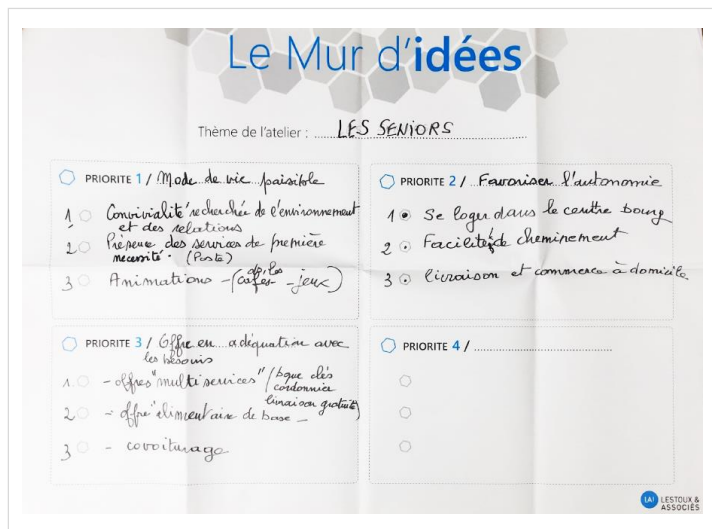 Le Mur d'idées
Thème de l'atelier : LES SENIORS
PRIORITE 1 / Mode de vie paisible
1 Convivialité recherchée de l'environnement
et des relations
2 Présence des services de première
necessité. (Poste)
3 Animations - (cafés - jeux)
PRIORITE 2 / Favoriser l'autonomie
1 Se loger dans le centre bourg
2 Facilité de cheminement
3 livraison et commerce à domicile
PRIORITE 3 / Offre en adéquation avec
les besoins
1 - offres "multiservices" (
clés
cordonnier
livraison gratuite)
2 - offre alimentaire de base -
3 - covoiturage
PRIORITE 4 /
LA! LESTOUX &
ASSOCIÉS